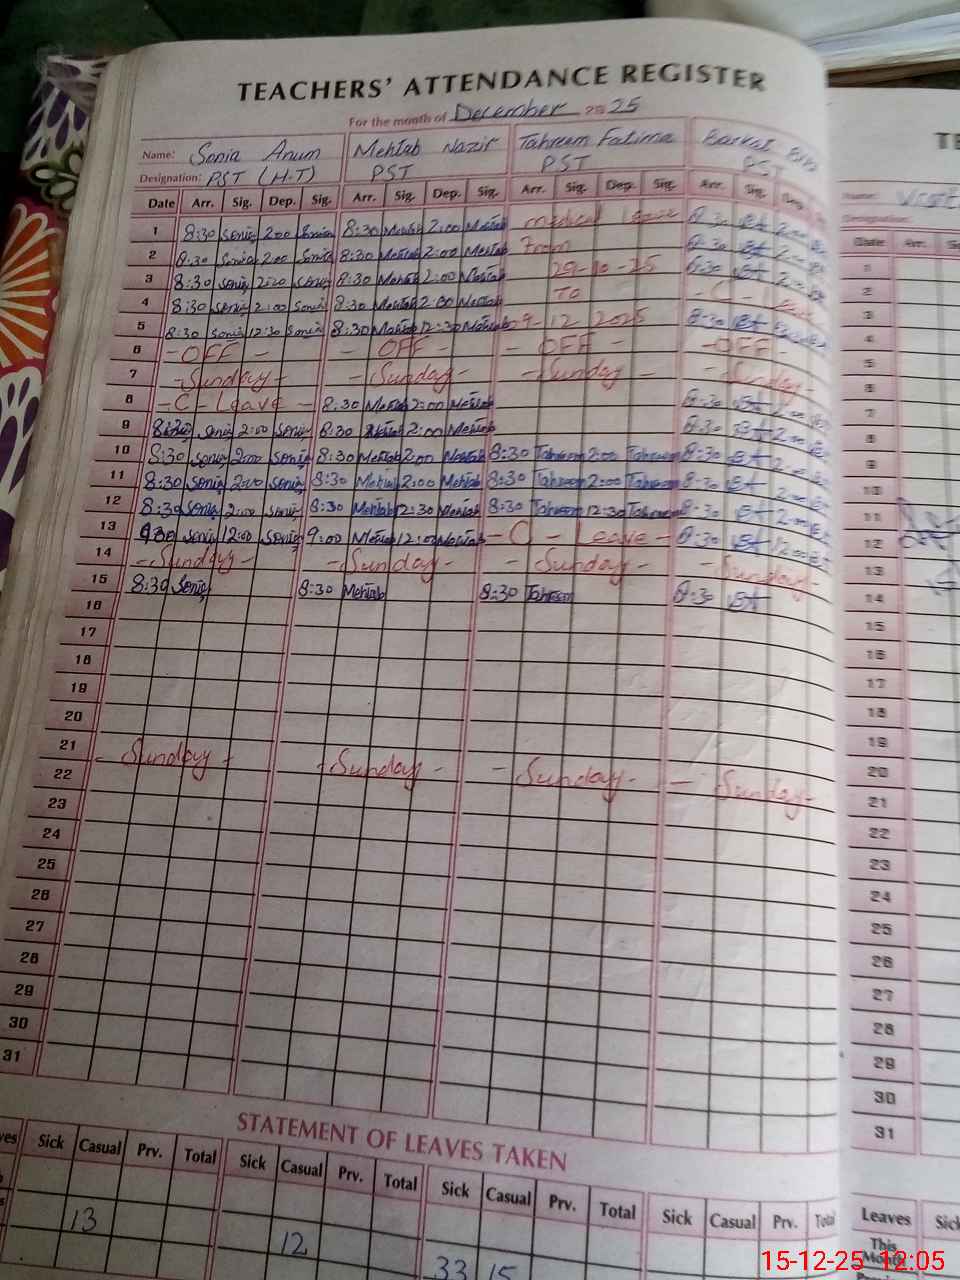 TEACHERS' ATTENDANCE REGISTER
For the month of December 2025
Name: Sonia Anum Mehtab Nazir Tahreem Fatima Barkat
Designation: PST (H.T) PST PST PST
Date Arr. Sig. Dep. Sig. Arr. Sig. Dep. Sig. Arr. Sig. Dep. Sig. Arr. Sig. Dep.
1 8:30 Sonia 2:00 Sonia 8:30 Mehtab 2:00 Mehtab medical Leave 8:30 2:00
2 8:30 Sonia 2:00 Sonia 8:30 Mehtab 2:00 Mehtab From 8:30 2:00
3 8:30 Sonia 2:00 Sonia 8:30 Mehtab 2:00 Mehtab 29-10-25 8:30 2:00
4 8:30 Sonia 2:00 Sonia 8:30 Mehtab 2:00 Mehtab To - C - Leave
5 8:30 Sonia 12:30 Sonia 8:30 Mehtab 12:30 Mehtab 09-12 2025 8:30
6 - OFF - - OFF - - OFF - - OFF -
7 - Sunday - - Sunday - - Sunday - - Sunday -
8 - C - Leave - 8:30 Mehtab 2:00 Mehtab 8:30 2:00
9 8:30 Sonia 2:00 Sonia 8:30 Mehtab 2:00 Mehtab 8:30 2:00
10 8:30 Sonia 2:00 Sonia 8:30 Mehtab 2:00 Mehtab 8:30 Tahreem 2:00 Tahreem 8:30 2:00
11 8:30 Sonia 2:00 Sonia 8:30 Mehtab 2:00 Mehtab 8:30 Tahreem 2:00 Tahreem 8:30 2:00
12 8:30 Sonia 2:00 Sonia 8:30 Mehtab 12:30 Mehtab 8:30 Tahreem 12:30 Tahreem 8:30 2:00
13 9:00 Sonia 12:00 Sonia 9:00 Mehtab 12:00 Mehtab - C - Leave - 8:30 12:00
14 - Sunday - - Sunday - - Sunday - - Sunday -
15 8:30 Sonia 8:30 Mehtab 8:30 Tahreem 8:30
16
17
18
19
20
21 - Sunday - - Sunday - - Sunday - - Sunday -
22
23
24
25
26
27
28
29
30
31
STATEMENT OF LEAVES TAKEN
Sick Casual Prv. Total Sick Casual Prv. Total Sick Casual Prv. Total Sick Casual Prv. Total
13 12 33 15
TE
Name:
Designation:
Date Arr.
1
2
3
4
5
6
7
8
9
10
11
12
13
14
15
16
17
18
19
20
21
22
23
24
25
26
27
28
29
30
31
Leaves Sick
This
Month
15-12-25 12:05